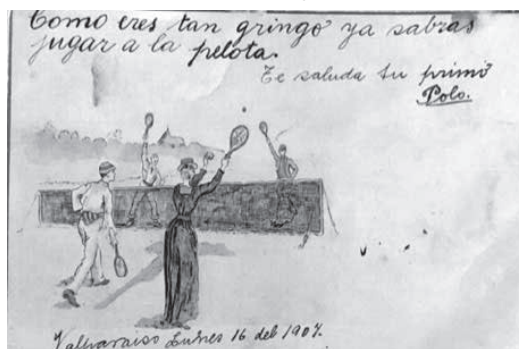 Como eres tan gringo ya sabras
jugar a la pelota.
Te saluda tu primo
Polo.
Valparaiso Lunes 16 del 1907.